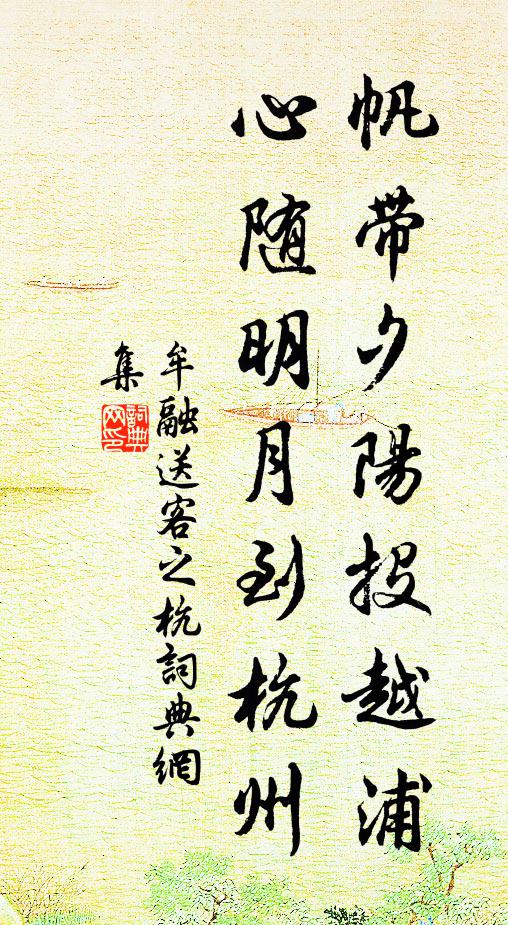 帆帶夕陽投越浦
心随明月到杭州
牟融送客之杭詞典網
集
詞典
网印